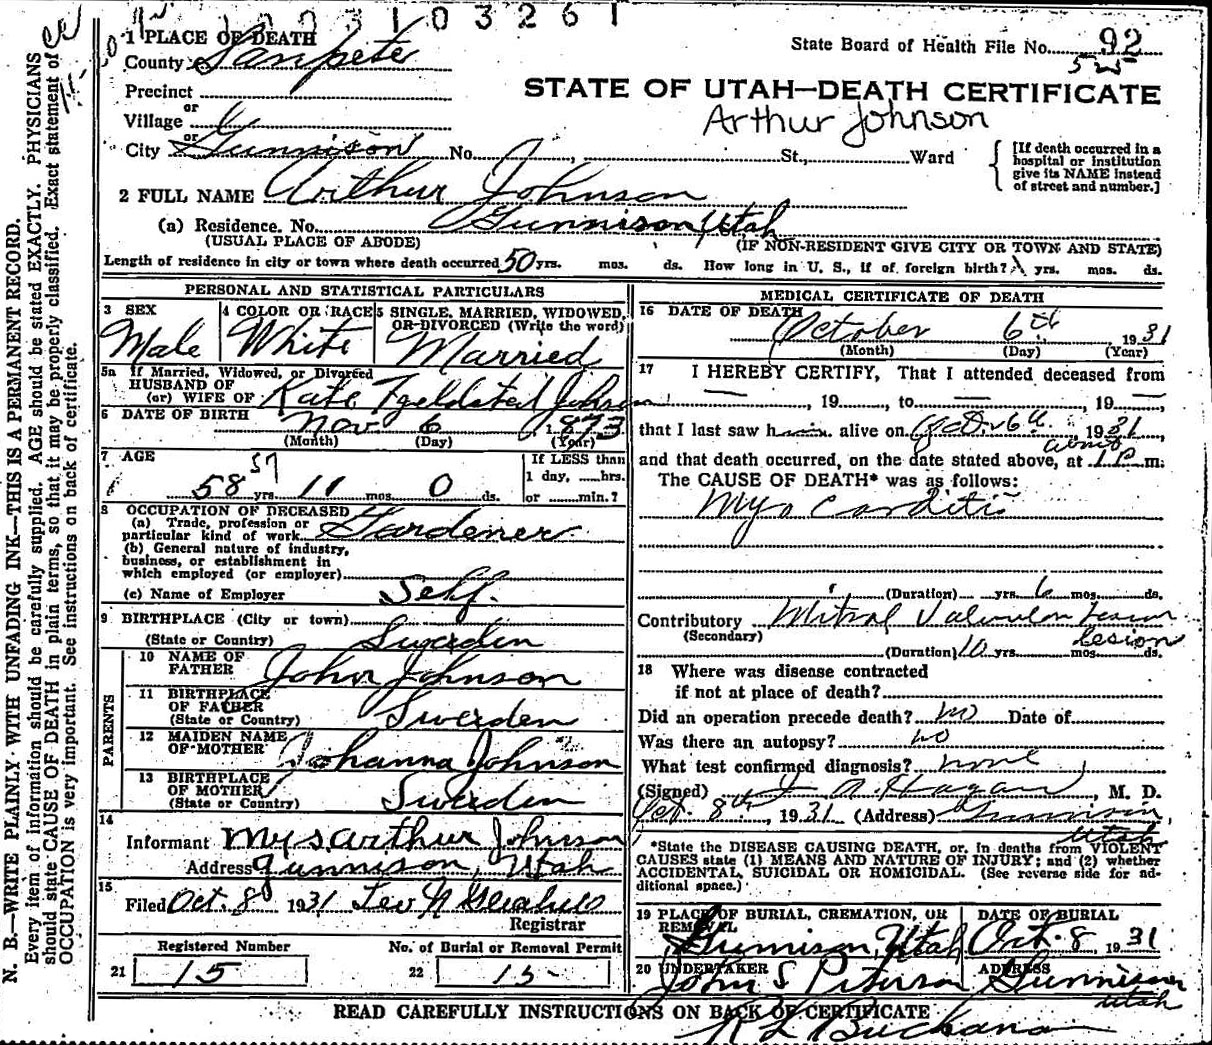 3 1 0 3 2 6 1
1 PLACE OF DEATH
State Board of Health File No. 92
525
County Sanpete
Precinct
or
Village
or
City Gunnison No. St., Ward
STATE OF UTAH—DEATH CERTIFICATE
Arthur Johnson
[If death occurred in a hospital or institution give its NAME instead of street and number.]
2 FULL NAME Arthur Johnson
(a) Residence. No. Gunnison, Utah
(USUAL PLACE OF ABODE) (IF NON-RESIDENT GIVE CITY OR TOWN AND STATE)
Length of residence in city or town where death occurred 50 yrs. mos. ds. How long in U. S., if of foreign birth? yrs. mos. ds.
PERSONAL AND STATISTICAL PARTICULARS
3 SEX
Male
4 COLOR OR RACE
White
5 SINGLE, MARRIED, WIDOWED, OR DIVORCED (Write the word)
Married
5a If Married, Widowed, or Divorced
HUSBAND OF
(or) WIFE OF Kate Fjeldsted Johnson
6 DATE OF BIRTH Nov 6 1873
(Month) (Day) (Year)
7 AGE
57
58 yrs. 11 mos. 0 ds.
If LESS than
1 day, ......hrs.
or ......min.?
8 OCCUPATION OF DECEASED
(a) Trade, profession or
particular kind of work Gardener
(b) General nature of industry,
business, or establishment in
which employed (or employer)
(c) Name of Employer Self.
9 BIRTHPLACE (City or town)
(State or Country) Sweden
PARENTS
10 NAME OF
FATHER John Johnson
11 BIRTHPLACE
OF FATHER
(State or Country) Sweden
12 MAIDEN NAME
OF MOTHER Johanna Johnson
13 BIRTHPLACE
OF MOTHER
(State or Country) Sweden
14
Informant Mrs Arthur Johnson
Address Gunnison, Utah
15
Filed Oct. 8 1931
Registrar
Registered Number
21 15
No. of Burial or Removal Permit
22 15
MEDICAL CERTIFICATE OF DEATH
16 DATE OF DEATH
October 6th 1931
(Month) (Day) (Year)
17 I HEREBY CERTIFY, That I attended deceased from
— , 19 , to — , 19 —,
that I last saw him alive on Oct. 6th 1931,
about
and that death occurred, on the date stated above, at 1 P. m.
The CAUSE OF DEATH* was as follows:
Myo Carditis
(Duration) yrs. 6 mos. ds.
Contributory Mitral Valvular Lesion
(Secondary) Lesion
(Duration) 10 yrs. mos. ds.
18 Where was disease contracted
if not at place of death?
Did an operation precede death? no Date of
Was there an autopsy? no
What test confirmed diagnosis? none
(Signed) A. Hagan, M. D.
Oct. 8th, 1931 (Address) Gunnison,
Utah
*State the DISEASE CAUSING DEATH, or, in deaths from VIOLENT
CAUSES state (1) MEANS AND NATURE OF INJURY; and (2) whether
ACCIDENTAL, SUICIDAL OR HOMICIDAL. (See reverse side for ad-
ditional space.)
19 PLACE OF BURIAL, CREMATION, OR
REMOVAL
Gunnison, Utah
DATE OF BURIAL
Oct. 8, 1931
20 UNDERTAKER
John S Peterson
ADDRESS
Gunnison
Utah
READ CAREFULLY INSTRUCTIONS ON BACK OF CERTIFICATE
R L Buchanan
N. B.—WRITE PLAINLY WITH UNFADING INK—THIS IS A PERMANENT RECORD.
Every item of information should be carefully supplied. AGE should be stated EXACTLY. PHYSICIANS
should state CAUSE OF DEATH in plain terms, so that it may be properly classified. Exact statement of
OCCUPATION is very important. See instructions on back of certificate.